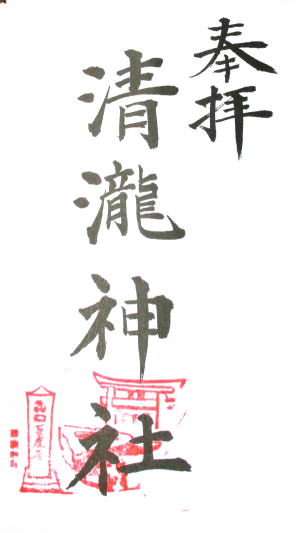 奉拝
清瀧神社